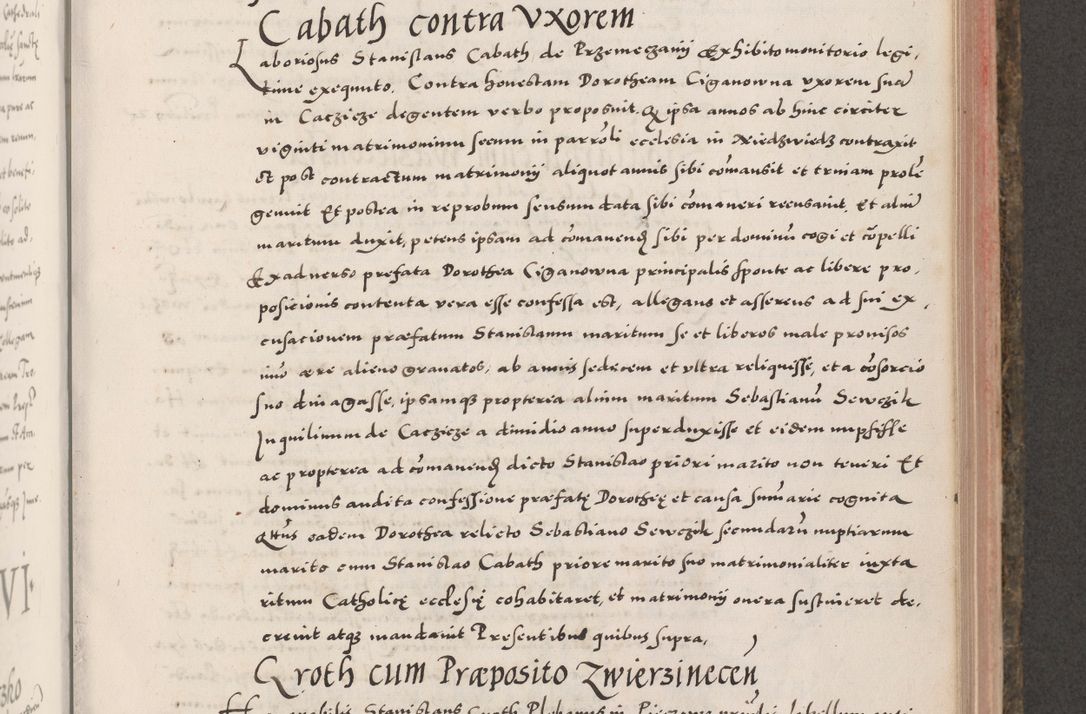 Cabath contra Vxorem
Laboriosus Stanislaus Cabath de Przemeczanij Exhibito monitorio legi,
time exequuto. Contra honestam Dorotheam Ciganowna vxorem suã
in Caczicze degentem verbo proposuit. Q ipsa annos ab hinc circiter
viginti matrimonium secum in parrõli ecclesia in Niedzwiedz contraxit
et post contractum matrimonij aliquot annis sibi cõmansit et trinam prolẽ
genuit Et postea in reprobum sensum data sibi cõmaneri recusauit, Et aliũ
maritum duxit, petens ipsam ad cõmanendũ sibi per dominũ cogi et cõpelli
Ex aduerso prefata Dorothea Ciganowna principalis sponte ac libere pro,
posicionis contenta vera esse confessa est, allegans et asserens ad sui ex,
cusacionem præfatum Stanislaum maritum se et liberos male prouisos
imo ære alieno grauatos, ab annis sedecem et vltra reliquisse, et a cõsorcio
suo diuagasse, ipsamq3 propterea alium maritum Sebastianũ Sewczik
Inquilinum de Caczicze a dimidio anno superduxisse et eidem nupsisse
ac propterea ad cõmanendũ dicto Stanislao priori marito non teneri Et
dominus audita confessione præfatę Dorotheę et causa sumarie cognita
Qtus eadem Dorothea relicto Sebastiano Sewczik secundarũ nuptiarum
marito cum Stanislao Cabath priore marito suo matrimonialiter iuxta
ritum Catholicę ecclesię cohabitaret, et matrimonij onera sustineret de,
creuit atq3 mandauit Presentibus quibus supra,
Groth cum Præposito Zwierzineceñ
Stanislaus Groth Plebanus in